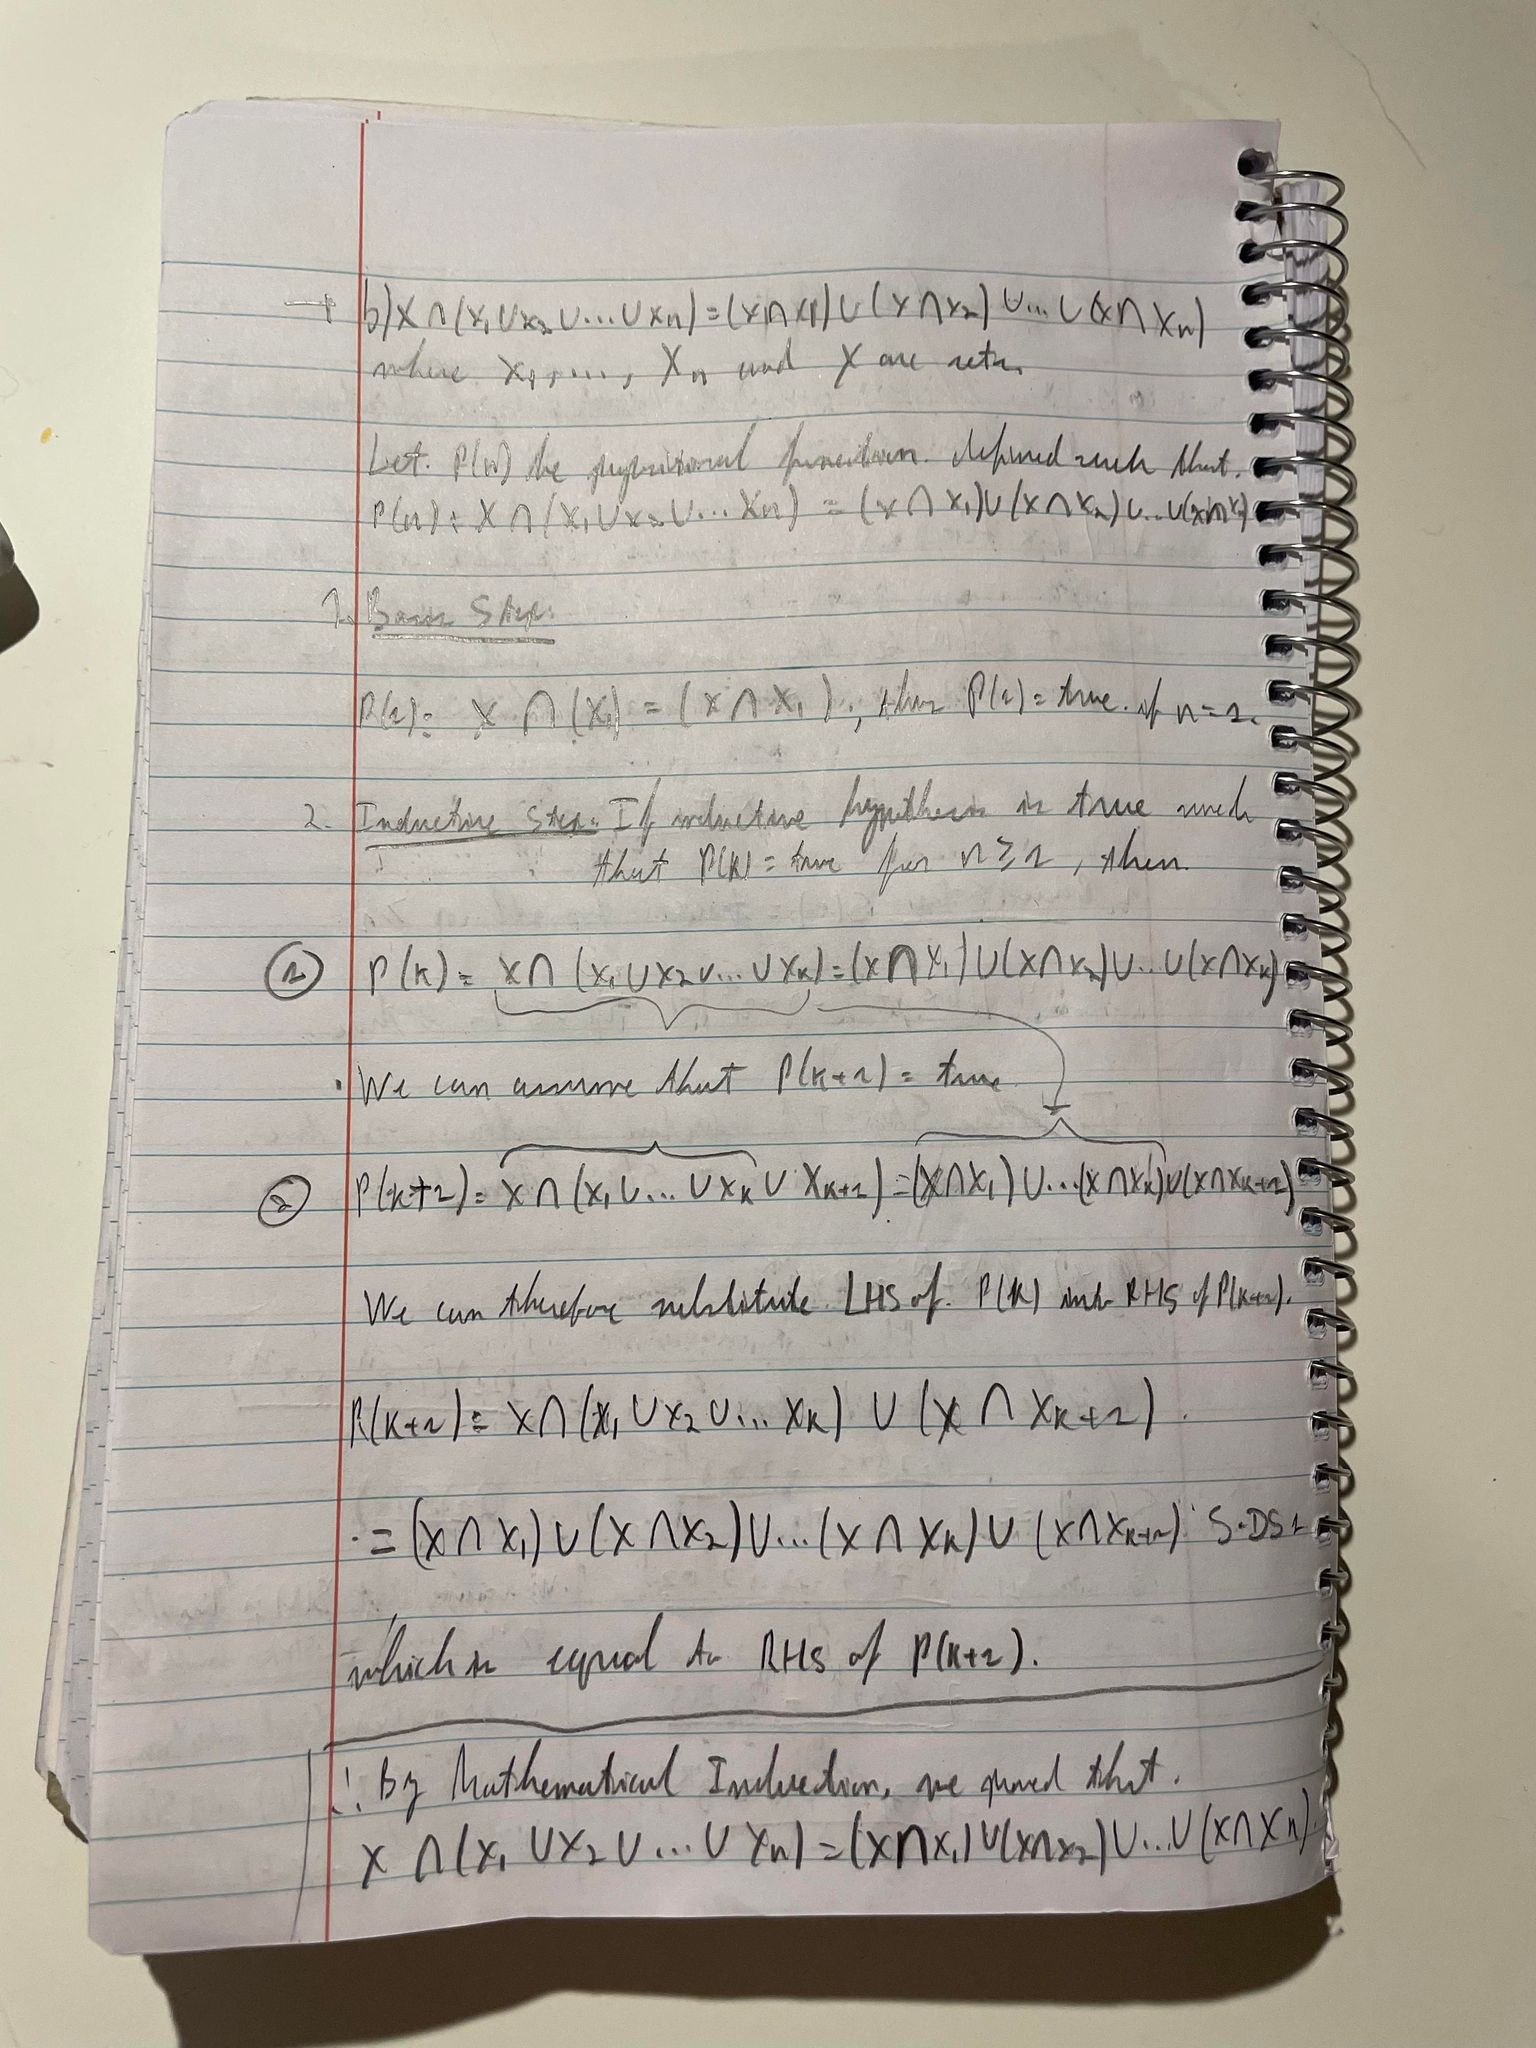 b) X ∩ (X₁ ∪ X₂ ∪ ... ∪ Xn) = (X ∩ X₁) ∪ (X ∩ X₂) ∪ ... ∪ (X ∩ Xn)
where X₁, ..., Xn and X are sets.
Let. P(n) be propositional function. defined such that.
P(n): X ∩ (X₁ ∪ X₂ ∪ ... Xn) = (X ∩ X₁) ∪ (X ∩ X₂) ∪ ... ∪ (X ∩ Xn)
1. Basis Step:
P(1): X ∩ (X₁) = (X ∩ X₁), thus P(1) = true. if n = 1.
2. Inductive Step: If inductive hypothesis is true such
that P(k) = true for n ≥ 1, then.
① P(k) = X ∩ (X₁ ∪ X₂ ∪ ... ∪ Xk) = (X ∩ X₁) ∪ (X ∩ X₂) ∪ ... ∪ (X ∩ Xk)
• We can assume that P(k+1) = true
② P(k+1) = X ∩ (X₁ ∪ ... ∪ Xk ∪ Xk+1) = (X ∩ X₁) ∪ ... (X ∩ Xk) ∪ (X ∩ Xk+1)
We can therefore substitute LHS of. P(k) into RHS of P(k+1).
P(k+1) = X ∩ (X₁ ∪ X₂ ∪ ... Xk) ∪ (X ∩ Xk+1).
= (X ∩ X₁) ∪ (X ∩ X₂) ∪ ... (X ∩ Xk) ∪ (X ∩ Xk+1)
which is equal to RHS of P(k+1).
∴ By Mathematical Induction, we proved that.
X ∩ (X₁ ∪ X₂ ∪ ... ∪ Xn) = (X ∩ X₁) ∪ (X ∩ X₂) ∪ ... ∪ (X ∩ Xn).